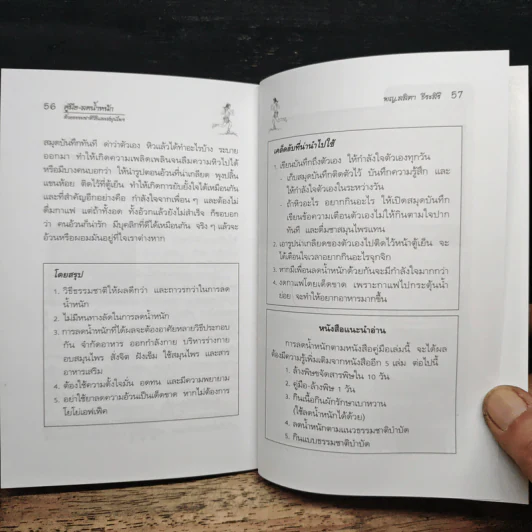 56 คู่มือ-ลดน้ำหนัก
สมุดบันทึกทันที ด่าว่าตัวเอง หิวแล้วได้ทำอะไรบ้าง ระบาย
ออกมา ทำให้เกิดความเพลิดเพลินจนลืมความหิวไปได้
หรือมีบางคนบอกว่า ให้นำรูปตอนอ้วนที่น่าเกลียด พุงปลิ้น
แขนห้อย ติดไว้ที่ตู้เย็น ทำให้เกิดการยับยั้งใจได้เหมือนกัน
และที่สำคัญอีกอย่างคือ กำลังใจจากเพื่อน ๆ และต้องไม่
ดื่มกาแฟ แต่ถ้าทั้งอด ทั้งอ้วกแล้วยังไม่สำเร็จ ก็ขอบอก
ว่า คนอ้วนก็น่ารัก มีบุคลิกที่ดีได้เหมือนกัน จริง ๆ แล้วจะ
อ้วนหรือผอมมันอยู่ที่ใจเราต่างหาก
โดยสรุป
1. วิธีธรรมชาติให้ผลดีกว่า และถาวรกว่าในการลด
น้ำหนัก
2. ไม่มีหนทางลัดในการลดน้ำหนัก
3. การลดน้ำหนักที่ได้ผลจะต้องอาศัยหลายวิธีประกอบ
กัน จำกัดอาหาร ออกกำลังกาย บริหารร่างกาย
อบสมุนไพร สั่งจิต ฝังเข็ม ใช้สมุนไพร และสาร
อาหารเสริม
4. ต้องใช้ความตั้งใจมั่น อดทน และมีความพยายาม
5. อย่าใช้ยาลดความอ้วนเป็นเด็ดขาด หากไม่ต้องการ
โยโย่เอฟเฟ็ค
พญ.ลลิตา ธีระสิริ 57
เคล็ดลับที่น่านำไปใช้
1. เขียนบันทึกถึงตัวเอง ให้กำลังใจตัวเองทุกวัน
- เก็บสมุดบันทึกติดตัวไว้ บันทึกความรู้สึก และ
ให้กำลังใจตัวเองในระหว่างวัน
- ถ้าหิวอะไร อยากกินอะไร ให้เปิดสมุดบันทึก
เขียนข้อความเตือนตัวเองไม่ให้กินตามใจปาก
ทันที และดื่มชาสมุนไพรแทน
2. เอารูปน่าเกลียดของตัวเองไปติดไว้หน้าตู้เย็น จะ
ได้เตือนใจเวลาอยากกินอะไรจุกจิก
3. หากมีเพื่อนลดน้ำหนักด้วยกันจะมีกำลังใจมากกว่า
4. งดกาแฟโดยเด็ดขาด เพราะกาแฟไปกระตุ้นน้ำ
ย่อย จะทำให้อยากอาหารมากขึ้น
หนังสือแนะนำอ่าน
การลดน้ำหนักตามหนังสือคู่มือเล่มนี้ จะได้ผล
ต้องมีความรู้เพิ่มเติมจากหนังสืออีก 5 เล่ม ต่อไปนี้
1. ล้างพิษขจัดสารพิษใน 10 วัน
2. คู่มือ-ล้างพิษ 1 วัน
3. กินเนื้อกินผักรักษาเบาหวาน
(ใช้ลดน้ำหนักได้ด้วย)
4. ลดน้ำหนักตามแนวธรรมชาติบำบัด
5. กินแบบธรรมชาติบำบัด